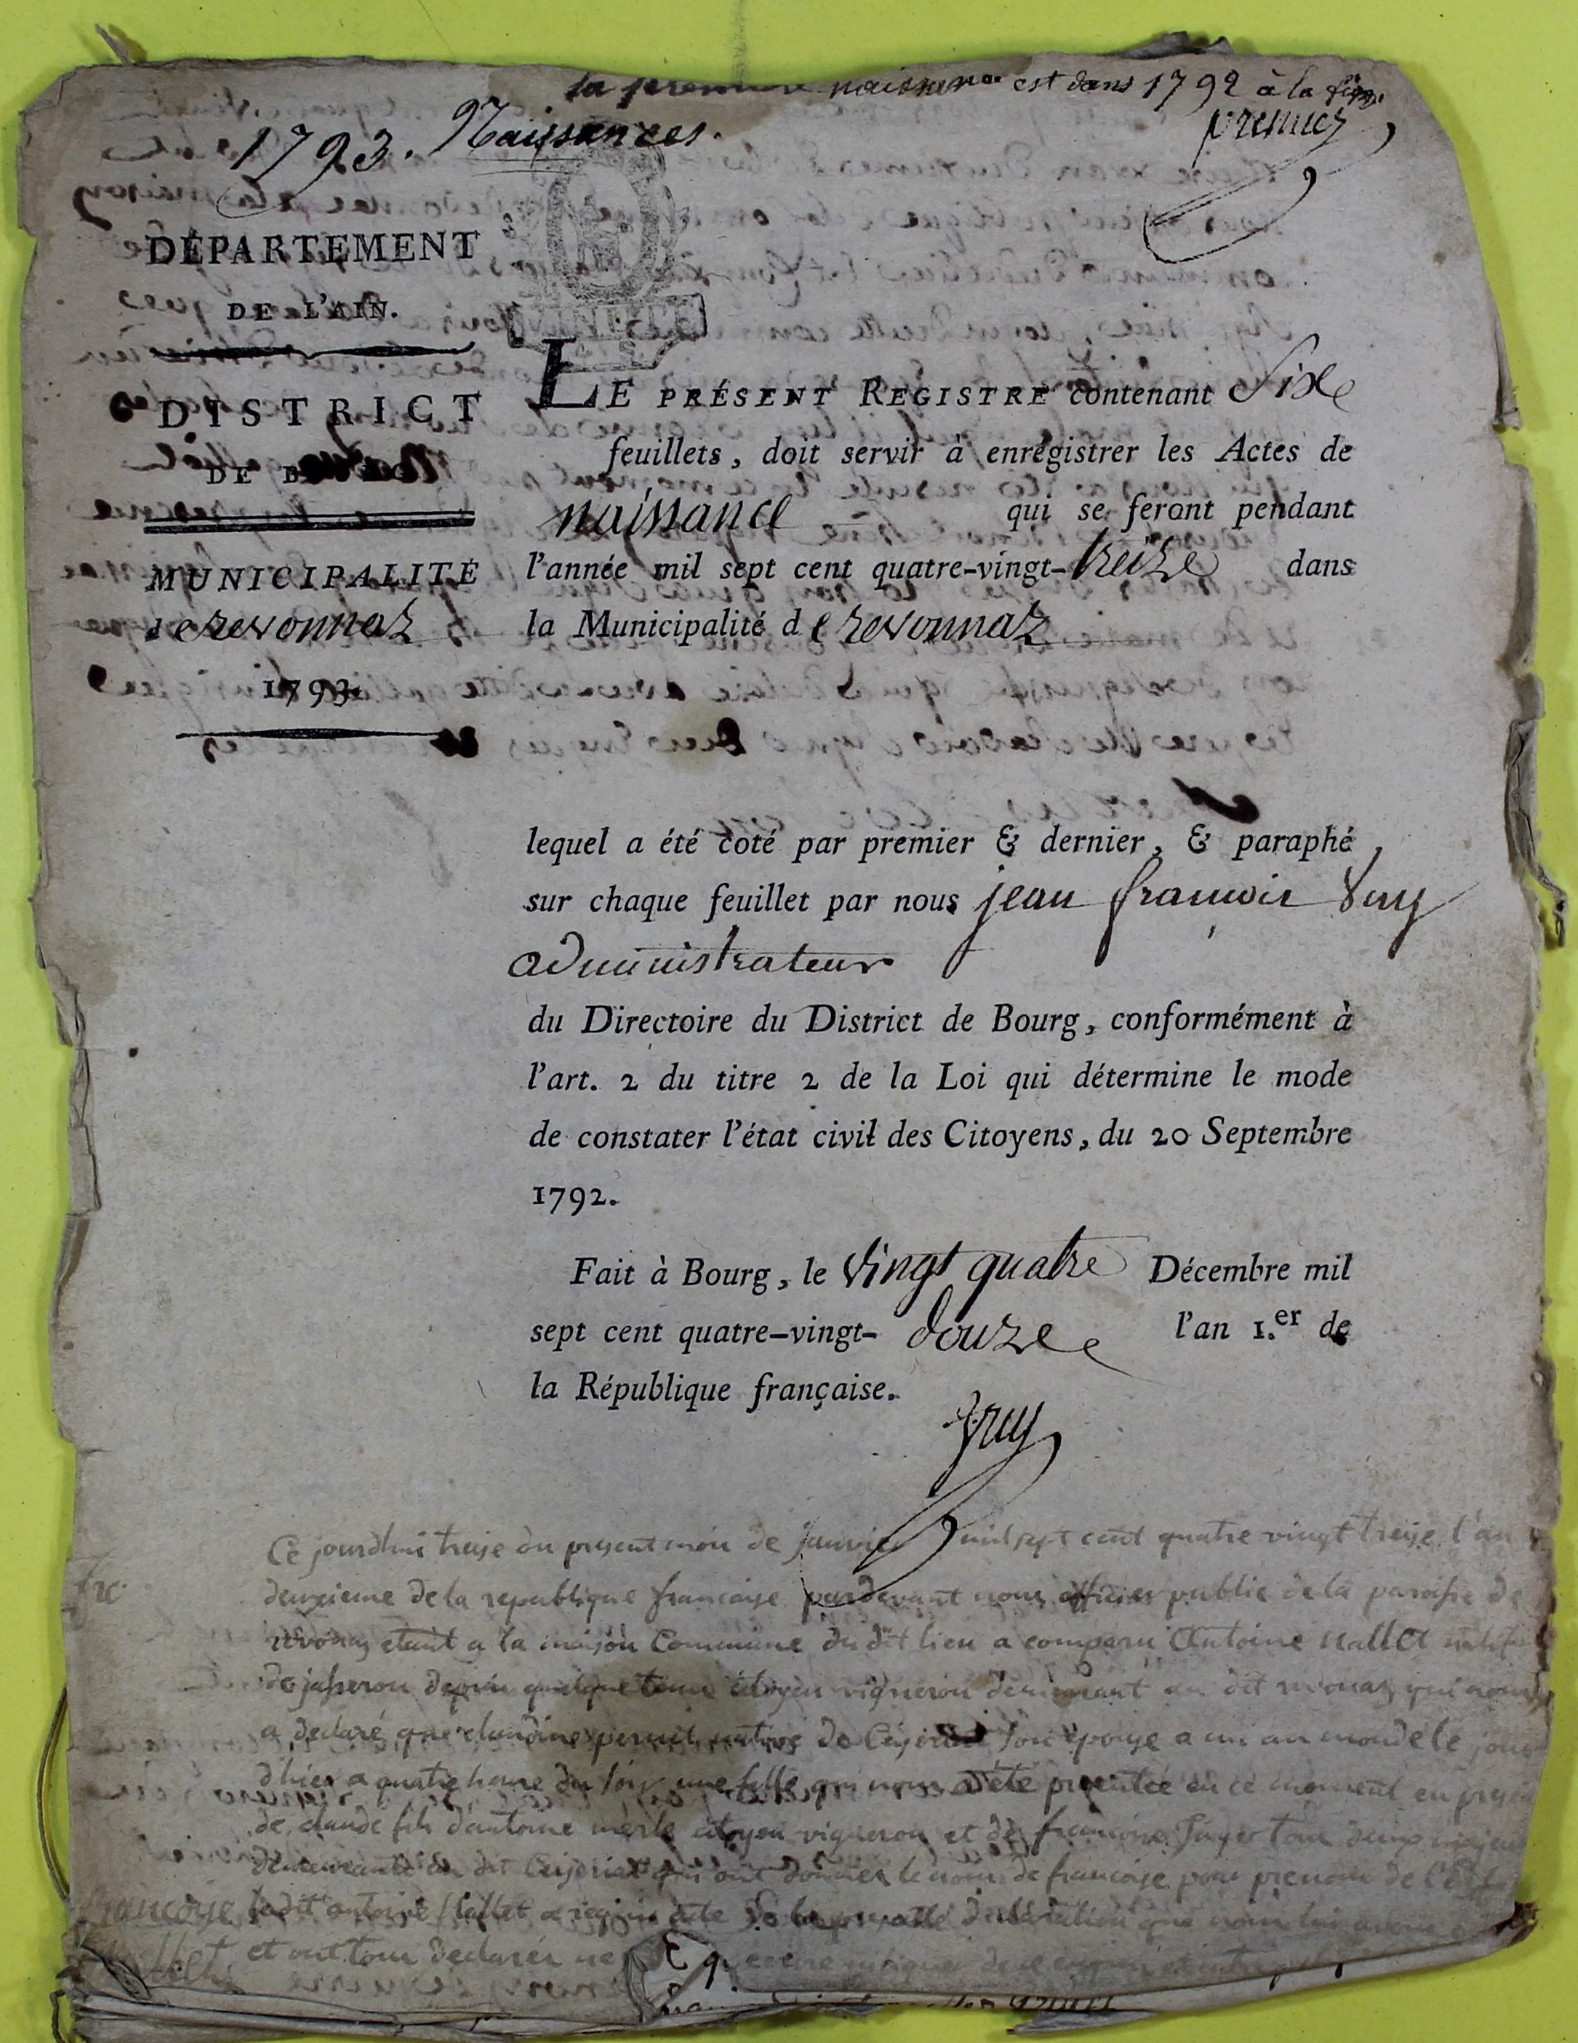 la premiere naissance est dans 1792 à la fin.
1793. Naissances.
premier
DÉPARTEMENT
DE L'AIN.
DISTRICT
DE B
MUNICIPALITÉ
de revonnaz
1793.
LE PRÉSENT REGISTRE contenant Six
feuillets, doit servir à enregistrer les Actes de
naissance qui se feront pendant
l'année mil sept cent quatre-vingt-treize dans
la Municipalité de revonnaz
lequel a été coté par premier & dernier, & paraphé
sur chaque feuillet par nous jean françois
administrateur
du Directoire du District de Bourg, conformément à
l'art. 2 du titre 2 de la Loi qui détermine le mode
de constater l'état civil des Citoyens, du 20 Septembre
1792.
Fait à Bourg, le vingt quatre Décembre mil
sept cent quatre-vingt-douze l'an 1.er de
la République française.
Ce jourdhui treise du present mois de janvier mil sept cent quatre vingt treise l'an
deuxieme de la republique francaise pardevant nous officier public de la paroisse de
revonas etant a la maison Commune du dit lieu a comparu Antoine Mallet natif
de jasseron depuis quelque tems citoyen vigneron demeurant au dit revonas qui nous
a declaré que claudine native de Ceyseriat son epouse a mis au monde le jour
dhier a quatre heure du soir une fille qui nous a été presentée en ce moment en presen
de claude fils d'antoine merle citoyen vigneron et de francoise tous deux majeurs
demeurants au dit Ceyseriat qui ont donner le nom de francoise pour prenom de l'
francoise ledit antoine Mallet a requis acte de la presente declaration que nous lui avons
Mallet et ont tous declarés ne